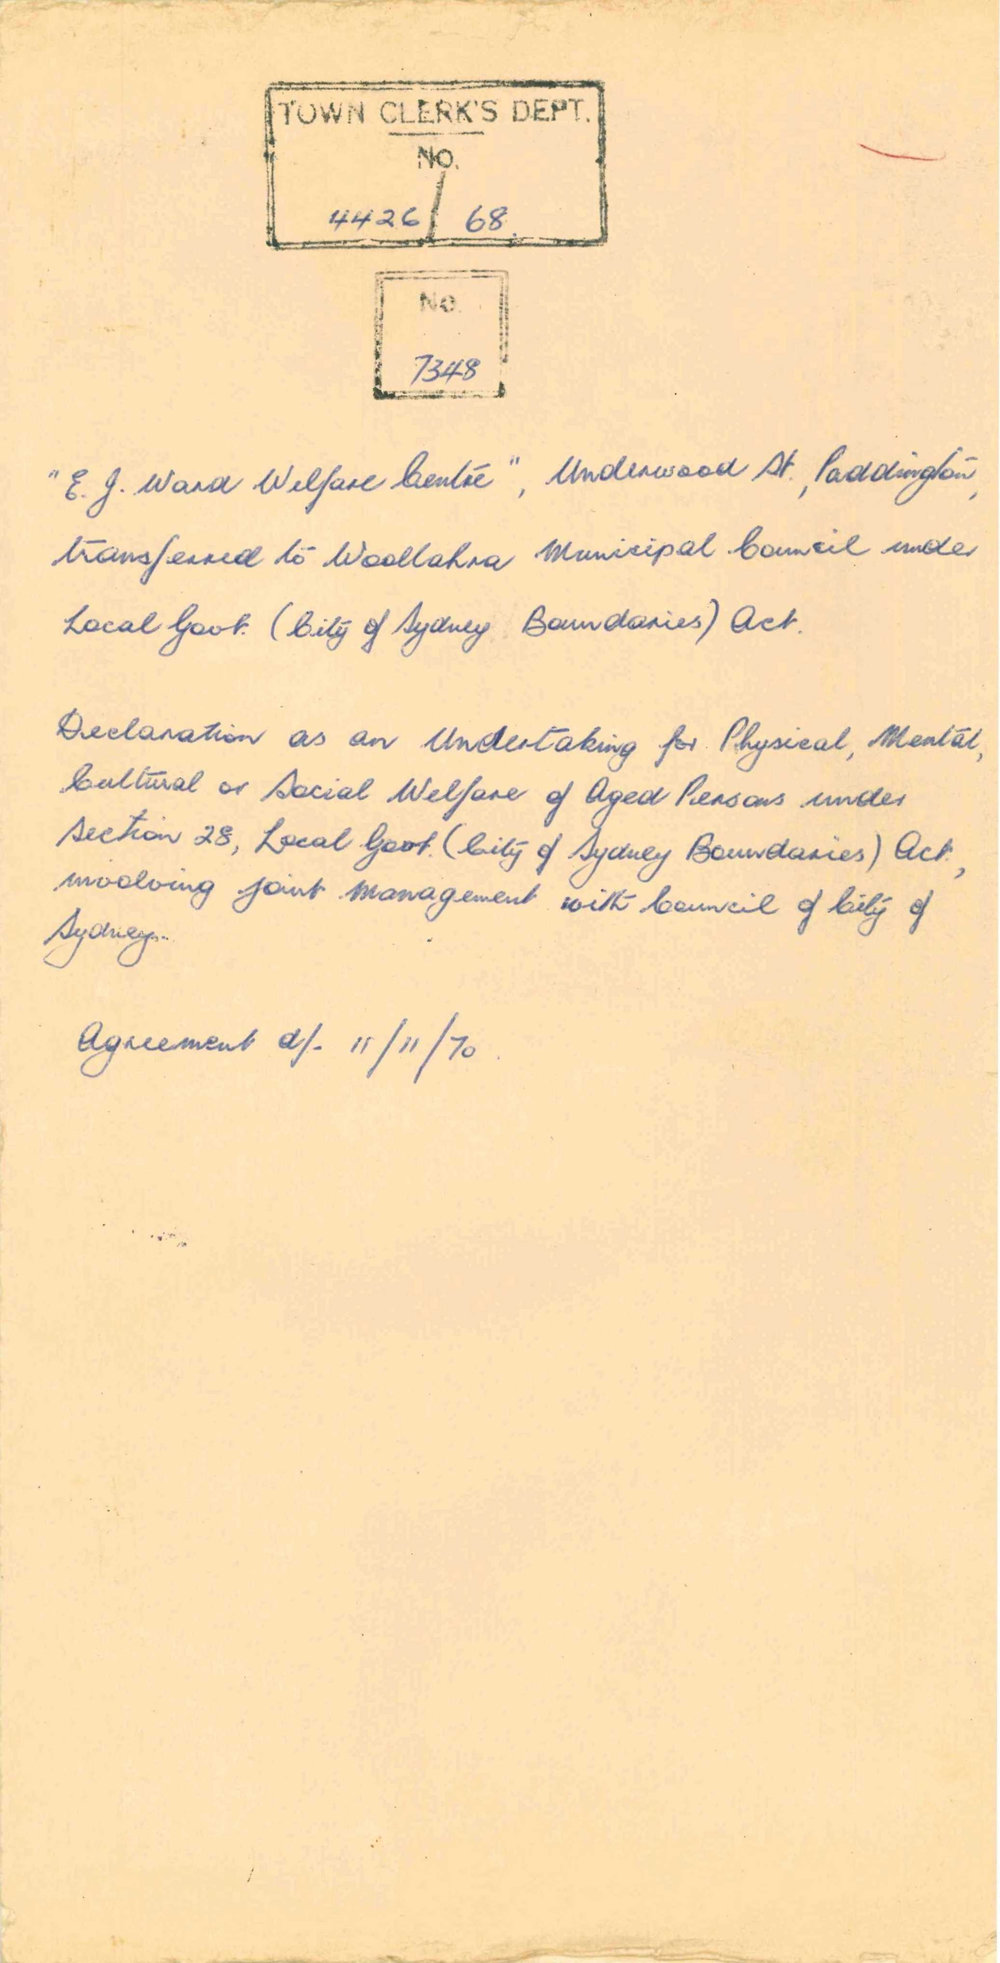 TOWN CLERK'S DEPT.
No.
4426/68.
No.
7348
"E. J. Ward Welfare Centre", Underwood St., Paddington,
transferred to Woollahra Municipal Council under
Local Govt. (City of Sydney Boundaries) Act.
Declaration as an Undertaking for Physical, Mental,
Cultural or Social Welfare of Aged Persons under
Section 28, Local Govt. (City of Sydney Boundaries) Act.,
involving joint management with Council of City of
Sydney.
Agreement d/- 11/11/70.